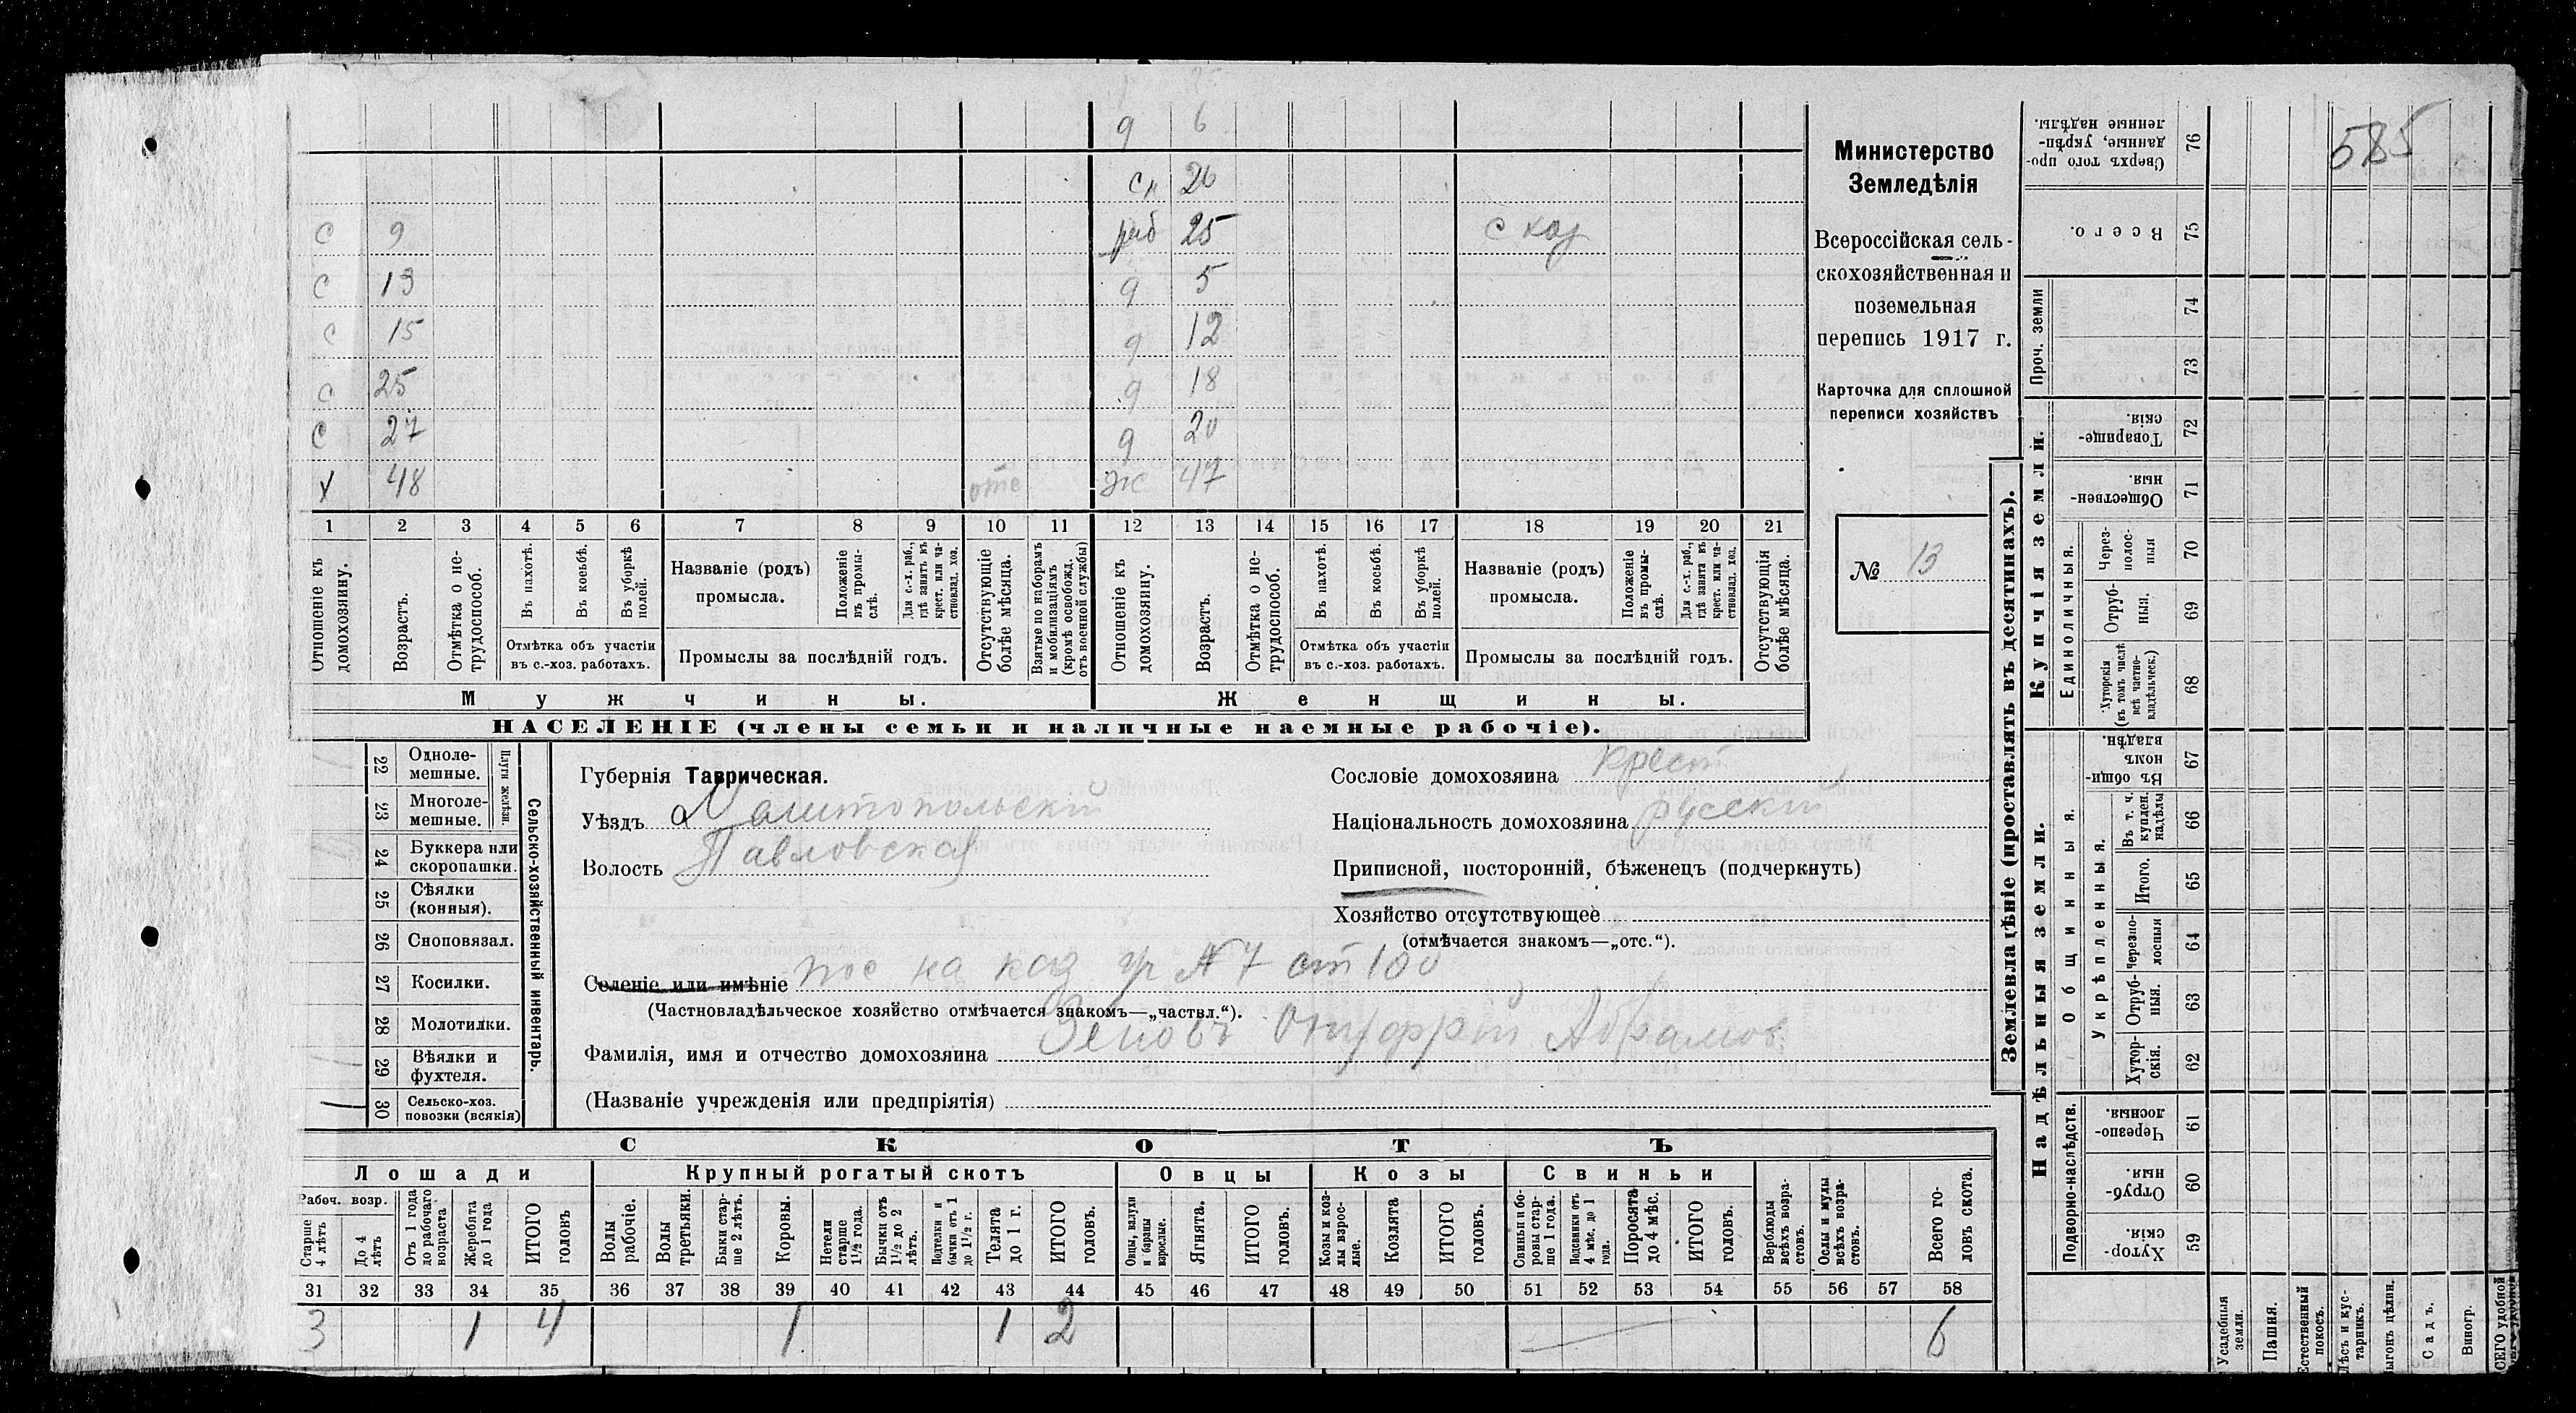 д 6
сн 26
с 9 раб 25 с хоз
с 13 д 5
с 15 д 12
с 25 д 18
с 27 д 20
х 48 отс ж 47
1 2 3 4 5 6 7 8 9 10 11 12 13 14 15 16 17 18 19 20 21
Отношеніе къ домохозяину.
Возрастъ.
Отмѣтка о нетрудоспособ.
Въ пахотѣ.
Въ косьбѣ.
Въ уборкѣ полей.
Отмѣтка объ участіи въ с.-хоз. работахъ.
Названіе (родъ) промысла.
Положеніе въ промыслѣ.
Для с.-х. раб., гдѣ занятъ въ крест. или частновлад. хоз.
Промыслы за послѣдній годъ.
Отсутствующіе болѣе мѣсяца.
Взятые по наборамъ и мобилизаціямъ (кромѣ освобожд. отъ военной службы)
Отношеніе къ домохозяину.
Возрастъ.
Отмѣтка о нетрудоспособ.
Въ пахотѣ.
Въ косьбѣ.
Въ уборкѣ полей.
Отмѣтка объ участіи въ с.-хоз. работахъ.
Названіе (родъ) промысла.
Положеніе въ промыслѣ.
Для с.-х. раб., гдѣ занята въ крест. или частновлад. хоз.
Промыслы за послѣдній годъ.
Отсутствующія болѣе мѣсяца.
Мужчины. Женщины.
НАСЕЛЕНІЕ (члены семьи и наличные наемные рабочіе).
Министерство
Земледѣлія
Всероссійская сель-
скохозяйственная и
поземельная
перепись 1917 г.
Карточка для сплошной
переписи хозяйствъ
№ 13
22 Одноле-мешные.
23 Многоле-мешные.
Плуги желѣзн.
24 Буккера или скоропашки.
25 Сѣялки (конныя).
26 Сноповязал.
27 Косилки.
28 Молотилки.
29 Вѣялки и фухтеля.
30 Сельско-хоз. повозки (всякія)
Сельско-хозяйственный инвентарь.
Губернія Таврическая.
Уѣздъ Мелитопольскій
Волость Павловская
Сословіе домохозяина крест
Національность домохозяина русскій
Приписной, посторонній, бѣженецъ (подчеркнуть)
Хозяйство отсутствующее
(отмѣчается знакомъ—„отс.“).
Селеніе или имѣніе пос на каз уч № 7 ст 100
(Частновладѣльческое хозяйство отмѣчается знакомъ—„частвл.“).
Фамилія, имя и отчество домохозяина Онуфрій Абрамов
(Названіе учрежденія или предпріятія)
СКОТЪ
Лошади Крупный рогатый скотъ Овцы Козы Свиньи
Рабоч. возр.
Старше 4 лѣтъ
До 4 лѣтъ
Отъ 1 года до рабочаго возраста
Жеребята до 1 года
ИТОГО головъ
Волы рабочіе.
Волы третьяки.
Быки старше 2 лѣтъ.
Коровы.
Нетели старше 1½ года.
Бычки отъ 1½ до 2 лѣтъ.
Подтелки и бычки отъ 1 до 1½ г.
Телята до 1 г.
ИТОГО головъ.
Овцы, валухи и бараны взрослые.
Ягнята.
ИТОГО головъ.
Козы и козлы взрослые.
Козлята
ИТОГО головъ.
Свиньи и боровы старше 1 года.
Подсвинки отъ 4 мѣс. до 1 года.
Поросята до 4 мѣс.
ИТОГО головъ.
Верблюды всѣхъ возрастовъ.
Ослы и мулы всѣхъ возрастовъ.
Всего головъ скота.
31 32 33 34 35 36 37 38 39 40 41 42 43 44 45 46 47 48 49 50 51 52 53 54 55 56 57 58
3 1 4 1 1 2 6
Землевладѣніе (проставлять въ десятинахъ).
Купчія земли.
Надѣльныя земли.
585
76 Сверхъ того проданные, укрѣпленные надѣлы.
75 Всего.
Проч. земли
74
73
72 Товарищескія.
71 Общественныя.
Единоличныя.
70 Черезполосныя
69 Отрубныя.
68 Хуторскія (въ томъ числѣ всѣ частновладѣльческ.)
Общинныя.
67 Въ общинномъ владѣн.
Укрѣпленныя.
66 Въ т. ч. куплен. надѣлы
65 Итого.
64 Черезполосныя
63 Отрубныя.
62 Хуторскія.
Подворно-наслѣдств.
61 Черезполосныя.
60 Отрубныя.
59 Хуторскія.
Усадебныя земли.
Пашня.
Естественный покосъ.
Лѣсъ и кустарникъ.
Выгонъ цѣлин.
Садъ.
Виногр.
ВСЕГО удобной